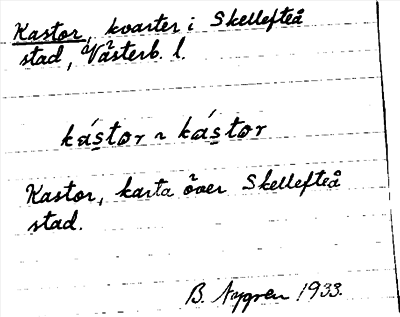 Kastor, kvarter i Skellefteå
stad, Västerb. l.
kástor ~ kástor
Kastor, karta över Skellefteå
stad.
B. Nygren 1933.